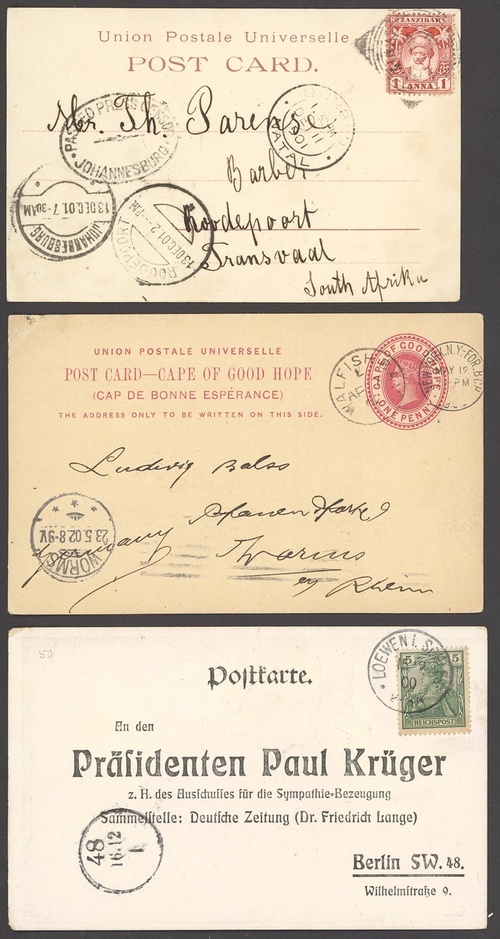 Union Postale Universelle
POST CARD.
ZANZIBAR
1 ANNA 1
Mr. Th. Parense
PASSED PRESS CENSOR
JOHANNESBURG
NATAL
1901
Barber
Roodepoort
Transvaal
South Afrika
13 DEC.01.7-30AM
JOHANNESBURG
13DEC.01 2-PM.
ROODEPOORT
UNION POSTALE UNIVERSELLE
POST CARD—CAPE OF GOOD HOPE
(CAP DE BONNE ESPÉRANCE)
THE ADDRESS ONLY TO BE WRITTEN ON THIS SIDE.
WALFISH
CAPE OF GOOD HOPE
ONE PENNY
NEW YORK, N.Y.
MAY 19
PM
Ludwig
Germany
Worms
Rhein
23.5.02.8-9V.
WORMS
50
Postkarte.
LOEWEN i. S
00
5 5
REICHSPOST
An den
Präsidenten Paul Krüger
z. H. des Ausschusses für die Sympathie-Bezeugung
Sammelstelle: Deutsche Zeitung (Dr. Friedrich Lange)
48
16.12
1
Berlin SW. 48.
Wilhelmstraße 9.